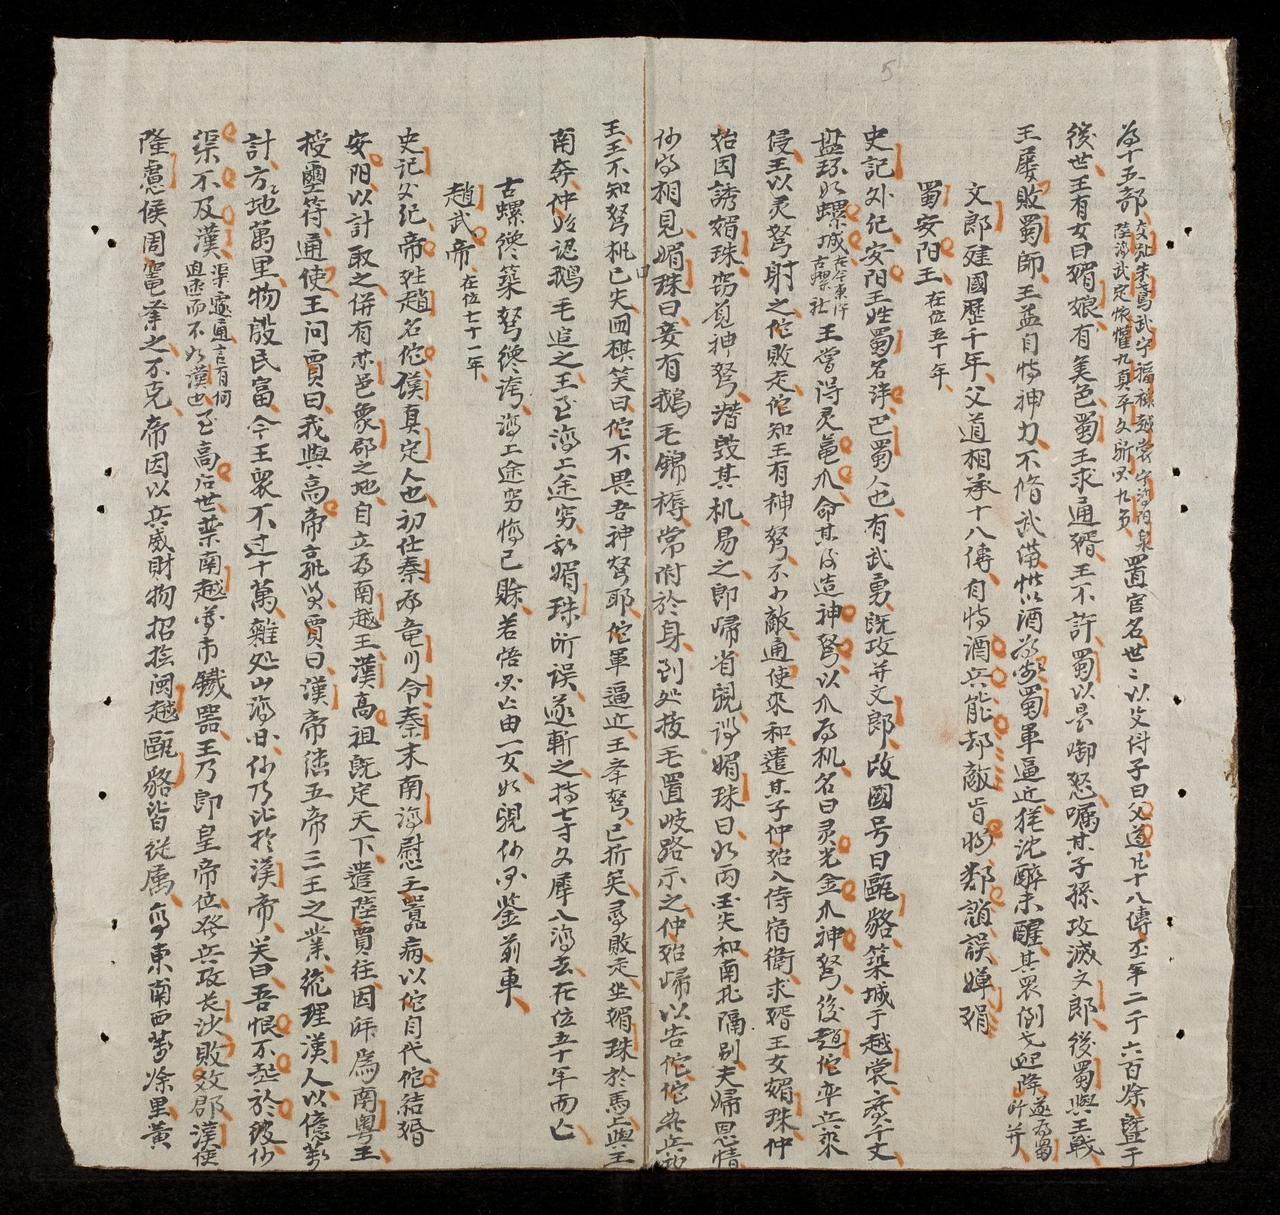 為十五部交趾朱鳶武寧福祿越裳寧海陽泉陸海武定懷驩九真平文新興九德置官名世二以父傳子曰父道凡十八傳至年二千六百餘暨于
後世王有女曰媚娘有美色蜀王求通婿王不許蜀以是啣怒嘱其子孫攻滅文郎後蜀與王戰
王屢敗蜀師王益自恃神力不脩武備惟以酒為娛蜀軍逼近猶沈醉未醒其衆倒戈迎降遂為蜀所并
文郎建國歷千年父道相承十八傳自恃酒兵能却敵肯將鄰誚誤嬋娟
蜀安陽王在位五十年
史記外紀安陽王姓蜀名泮巴蜀人也有武勇既攻并文郎改國号曰甌貉築城于越裳廣千丈
盘环如螺城在今東岸古螺社王嘗得灵龟爪命其臣造神弩以爪為机名曰灵光金爪神弩後趙佗率兵來
侵王以灵弩射之佗敗走佗知王有神弩不可敵通使來和遣其子仲始入侍宿衛求婿王女媚珠仲
始因誘媚珠窃覓神弩潜毁其机易之即帰省親謂媚珠曰如両王失和南北隔别夫婦恩情
何得相見媚珠曰妾有鵝毛錦褥常附於身到处拔毛置岐路示之仲始帰以告佗佗發兵攻
王王不知弩机已失囲棋笑曰佗不畏吾神弩耶佗軍逼近王举弩已折矣尋敗走坐媚珠於馬上與王
南奔仲始認鵝毛追之王至海上途穷知媚珠所误遂斬之持七寸文犀入海去在位五十年而亡
古螺纔築弩纔誇海上途穷悔已賖若悟興亡由一女如親何不鉴前車
趙武帝在位七十一年
史记外紀帝姓趙名佗漢真定人也初仕秦為竜川令秦末南海尉王嚣病以佗自代佗結婚
安陽以計取之併有林邑象郡之地自立為南越王漢高祖既定天下遣陸賈往因師為南粤王
授璽符通使王问賈曰我與高帝孰賢賈曰漢帝継五帝三王之業統理漢人以億萬
計方地萬里物殷民富今王衆不过十萬雜处山海间何乃比於漢帝笑曰吾恨不起於彼何
渠不及漢渠遽通言有何遽而不如漢也至高后世禁南越关市鐵器王乃即皇帝位發兵攻长沙敗数郡漢使
隆慮侯周竈擊之不克帝因以兵威財物招撫闽越甌貉皆從属焉東南西萬餘里黄